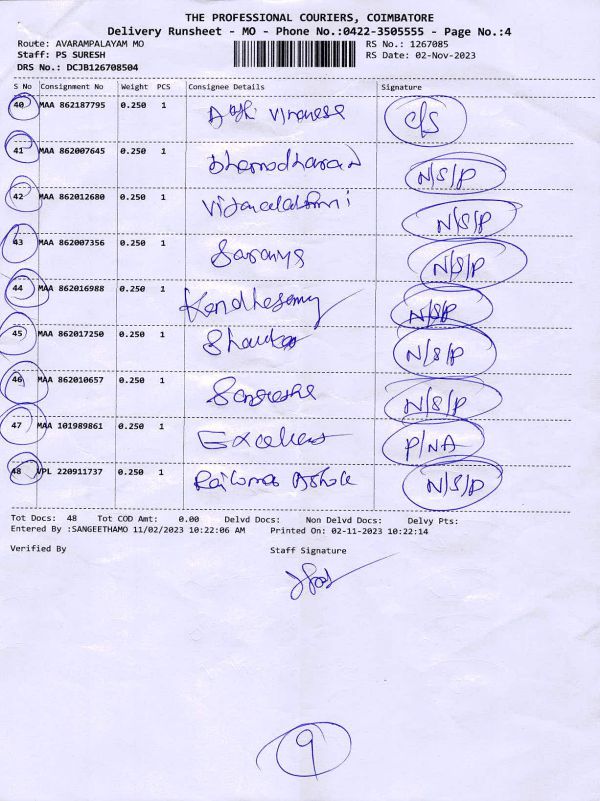 THE PROFESSIONAL COURIERS, COIMBATORE
Delivery Runsheet - MO - Phone No.:0422-3505555 - Page No.:4
Route: AVARAMPALAYAM MO RS No.: 1267085
Staff: PS SURESH RS Date: 02-Nov-2023
DRS No.: DCJB126708504
S No Consignment No Weight PCS Consignee Details Signature
40 MAA 862187795 0.250 1 C/S
41 MAA 862007645 0.250 1 Dhamodharan N/S/P
42 MAA 862012680 0.250 1 N/S/P
43 MAA 862007356 0.250 1 Saranya N/S/P
44 MAA 862016988 0.250 1 Kandhasamy N/S/P
45 MAA 862017250 0.250 1 N/S/P
46 MAA 862010657 0.250 1 N/S/P
47 MAA 101989861 0.250 1 P/NA
48 VPL 220911737 0.250 1 Ashok N/S/P
Tot Docs: 48 Tot COD Amt: 0.00 Delvd Docs: Non Delvd Docs: Delvy Pts:
Entered By :SANGEETHAMO 11/02/2023 10:22:06 AM Printed On: 02-11-2023 10:22:14
Verified By Staff Signature
9